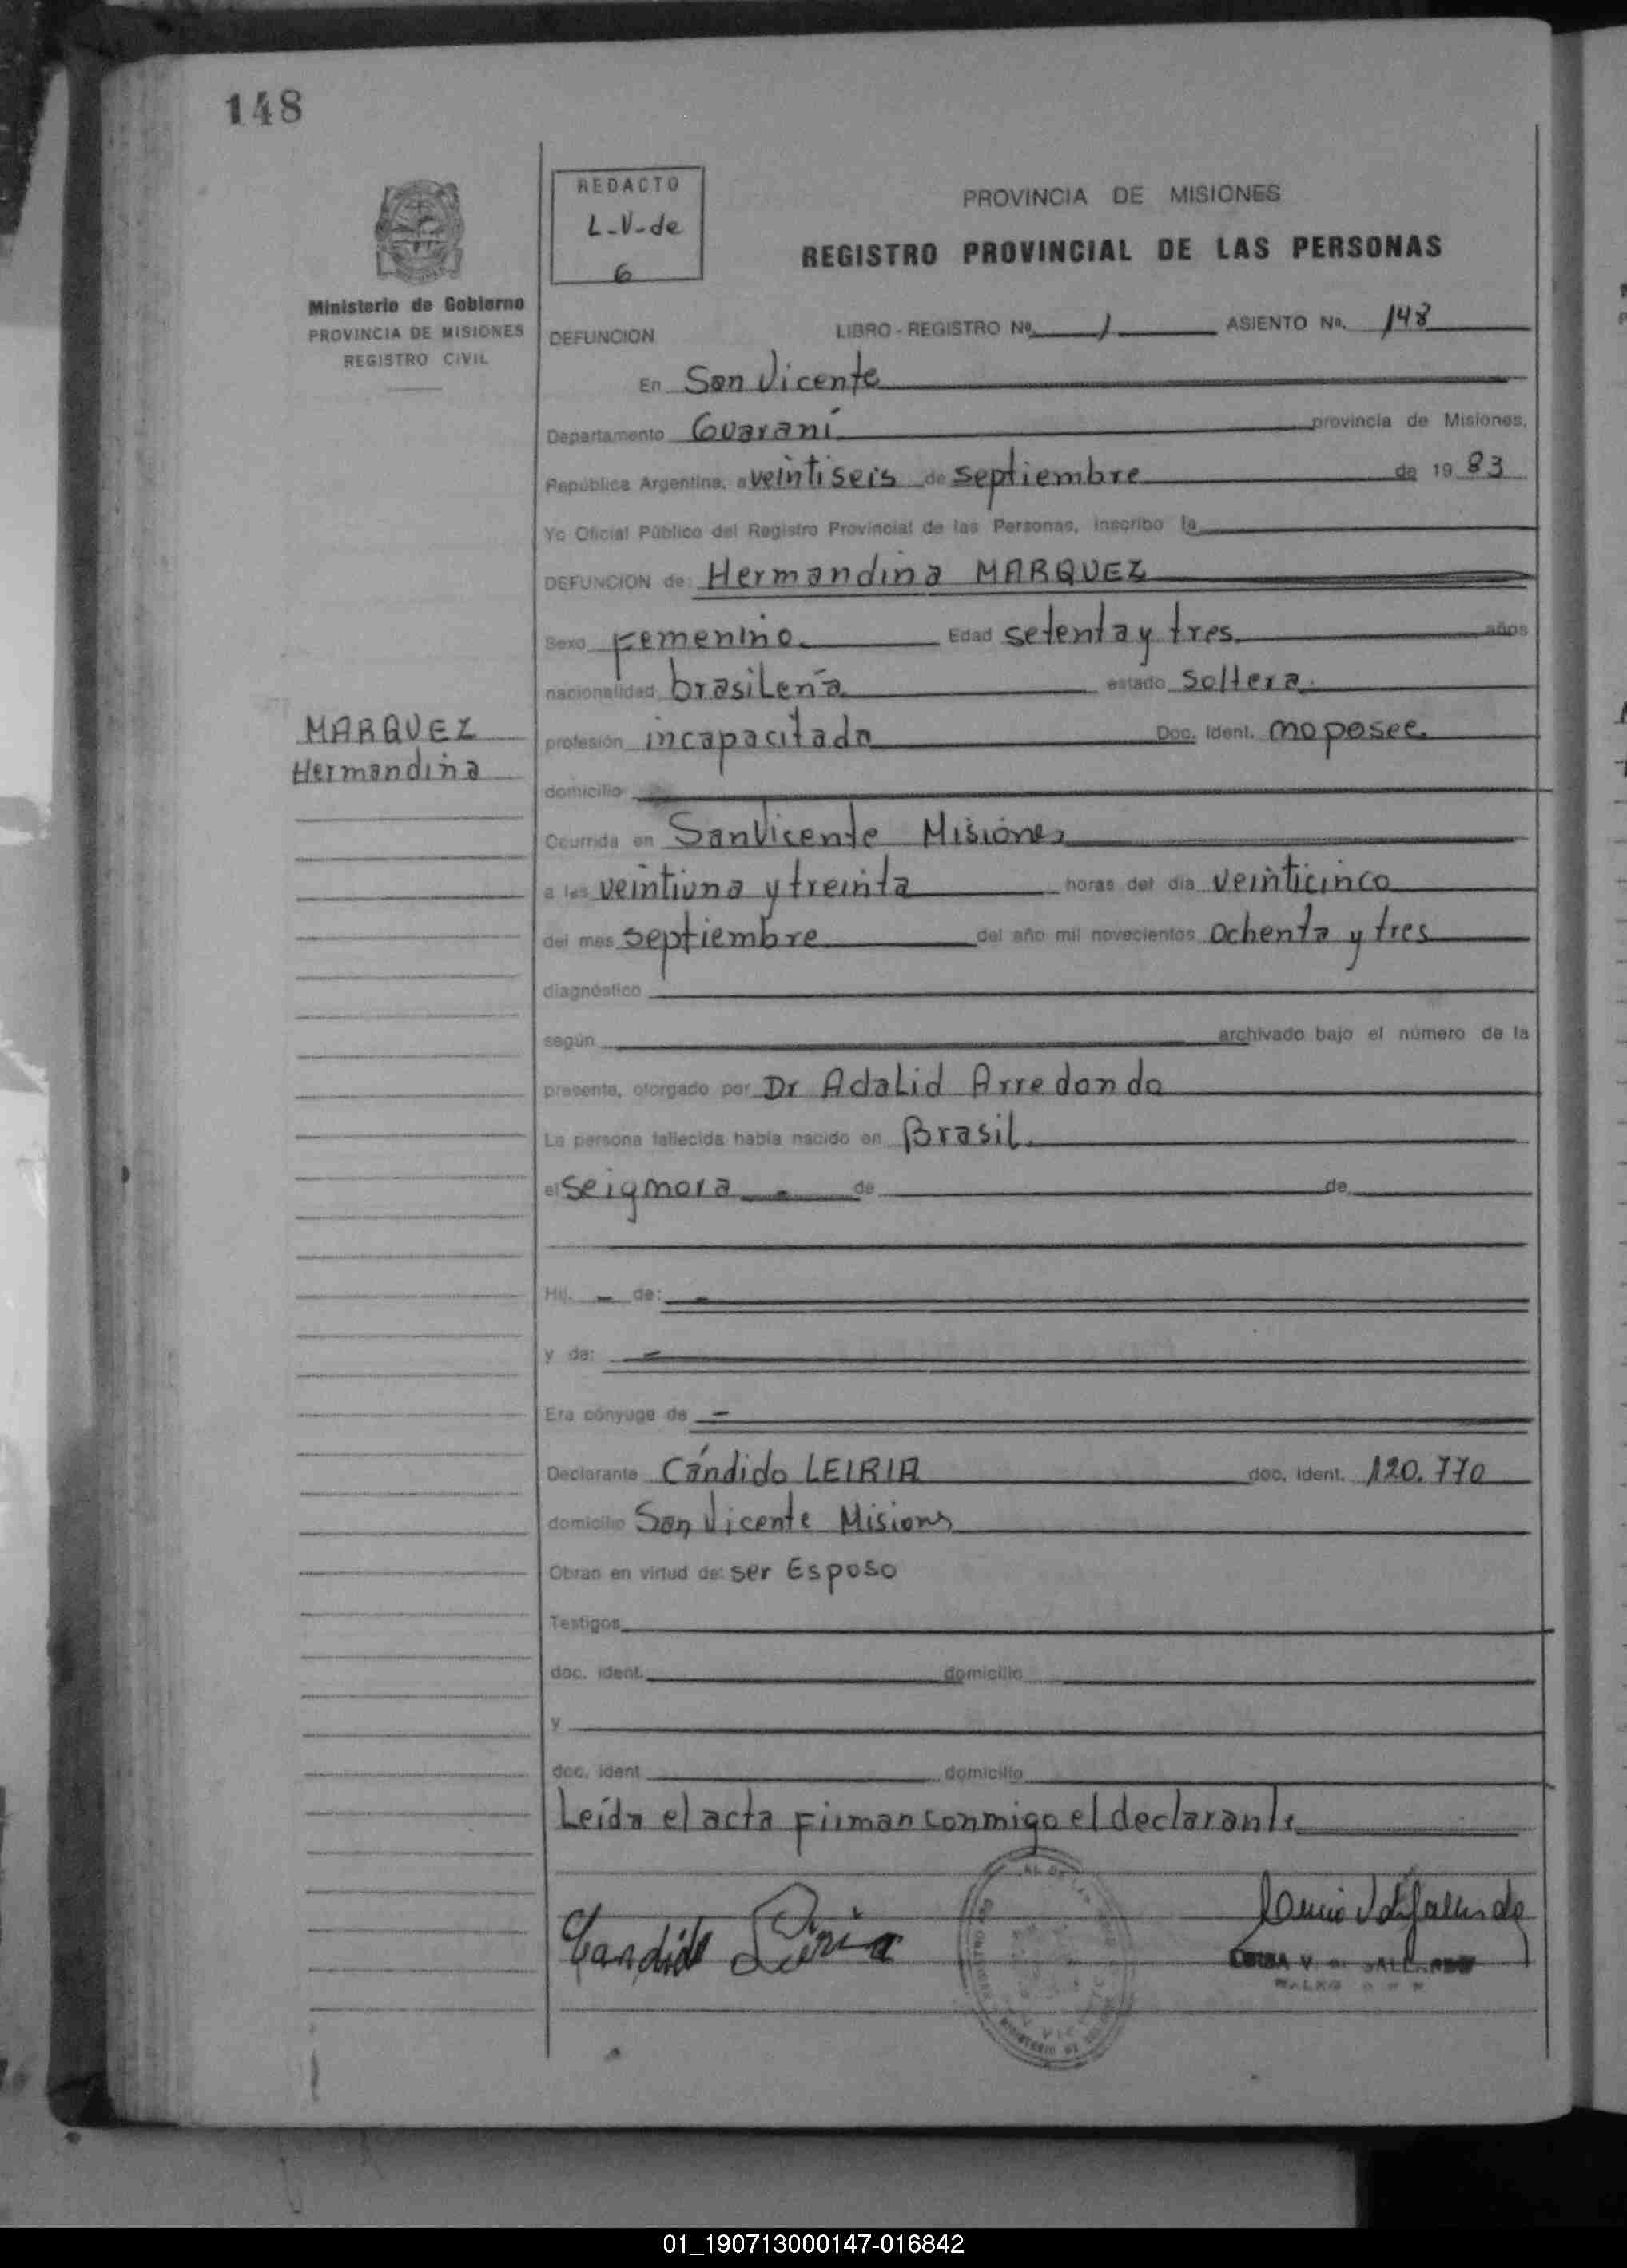 148
REDACTO
L-V-de
6
PROVINCIA DE MISIONES
REGISTRO PROVINCIAL DE LAS PERSONAS
Ministerio de Gobierno
PROVINCIA DE MISIONES
REGISTRO CIVIL
DEFUNCION LIBRO - REGISTRO Nº 1 ASIENTO Nº. 148
En San Vicente
Departamento Guaraní provincia de Misiones,
República Argentina, a veintiseis de septiembre de 19 83
Yo Oficial Público del Registro Provincial de las Personas, inscribo la
DEFUNCION de: Hermandina MARQUEZ
Sexo Femenino Edad setenta y tres años
nacionalidad brasileña estado soltera
MARQUEZ
Hermandina
profesión incapacitada Doc. Ident. no posee
domicilio
Ocurrida en San Vicente Misiones
a las veintiuna y treinta horas del día veinticinco
del mes septiembre del año mil novecientos ochenta y tres
diagnóstico
según archivado bajo el número de la
presente, otorgado por Dr Adalid Arredondo
La persona fallecida había nacido en Brasil.
el seignora - de de
Hij. - de: -
y de: -
Era cónyuge de -
Declarante Cándido LEIRIA doc. ident. 120.770
domicilio San Vicente Misions
Obran en virtud de: ser Esposo
Testigos
doc. ident. domicilio
y
doc. ident domicilio
Leída el acta Firman conmigo el declarante
Candido Leiria